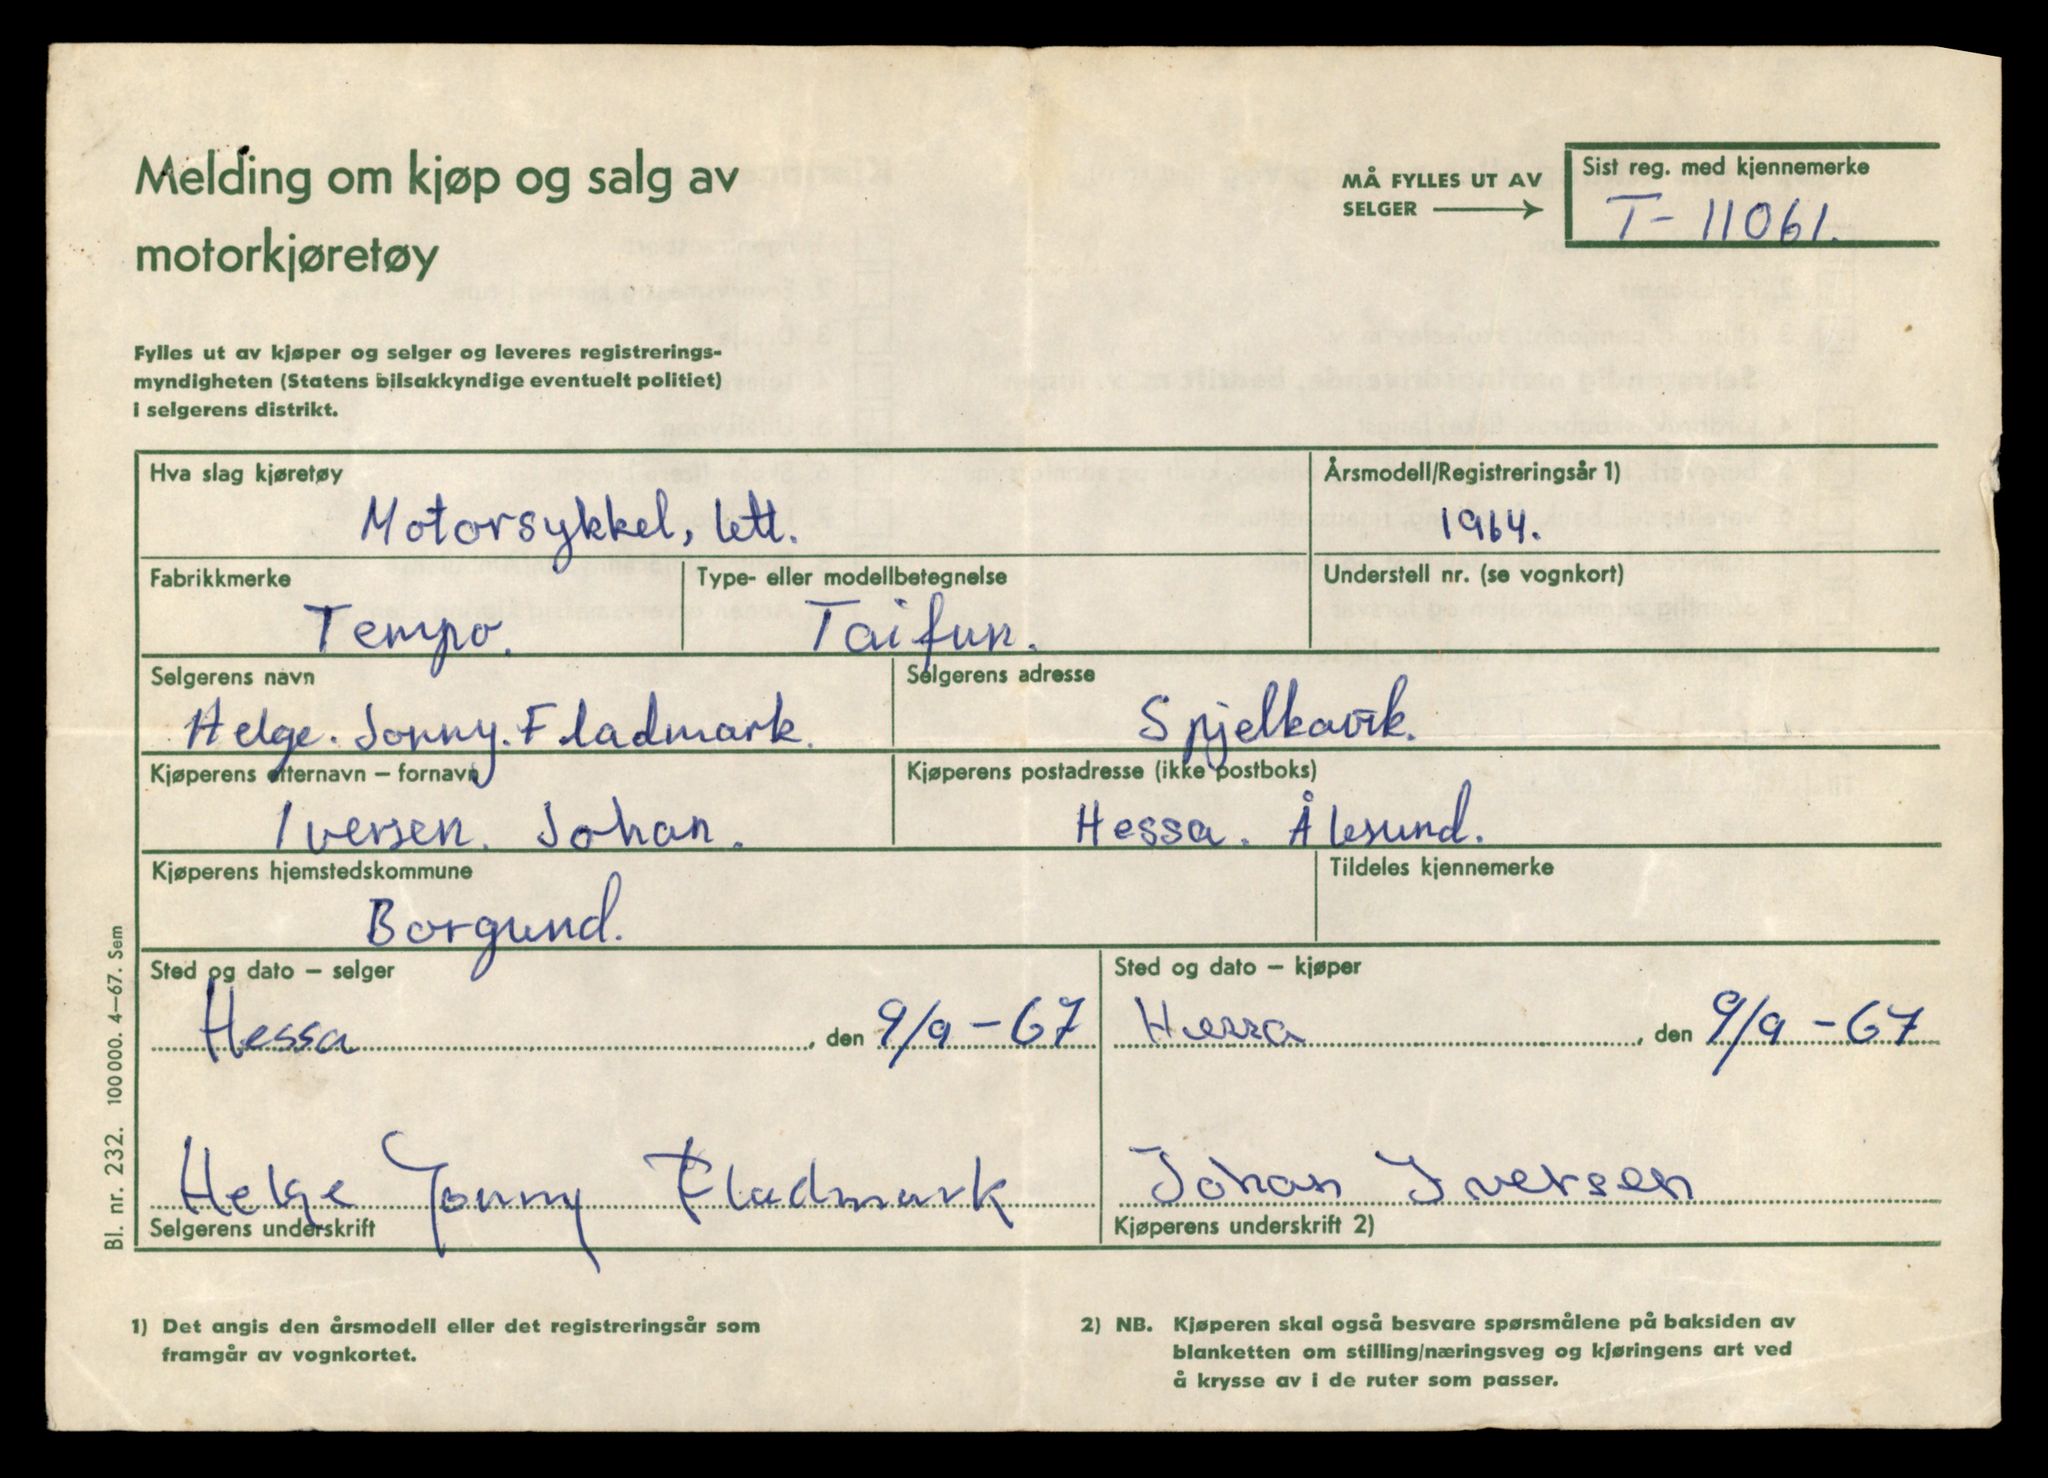 Melding om kjøp og salg av
motorkjøretøy
MÅ FYLLES UT AV
SELGER
Sist reg. med kjennemerke
T- 11061.
Fylles ut av kjøper og selger og leveres registrerings-
myndigheten (Statens bilsakkyndige eventuelt politiet)
i selgerens distrikt.
Hva slag kjøretøy
Motorsykkel, lett.
Årsmodell/Registreringsår 1)
1964.
Fabrikkmerke
Tempo.
Type- eller modellbetegnelse
Taifun.
Understell nr. (se vognkort)
Selgerens navn
Helge. Jonny. Fladmark.
Selgerens adresse
Spjelkavik.
Kjøperens etternavn – fornavn
Iversen. Johan.
Kjøperens postadresse (ikke postboks)
Hessa. Ålesund.
Kjøperens hjemstedskommune
Borgund.
Tildeles kjennemerke
Sted og dato – selger
Hessa, den 9/9-67
Sted og dato – kjøper
Hessa, den 9/9-67
Helge Jonny Fladmark
Selgerens underskrift
Johan Iversen
Kjøperens underskrift 2)
Bl. nr. 232. 100 000. 4–67. Sem
1) Det angis den årsmodell eller det registreringsår som
framgår av vognkortet.
2) NB. Kjøperen skal også besvare spørsmålene på baksiden av
blanketten om stilling/næringsveg og kjøringens art ved
å krysse av i de ruter som passer.